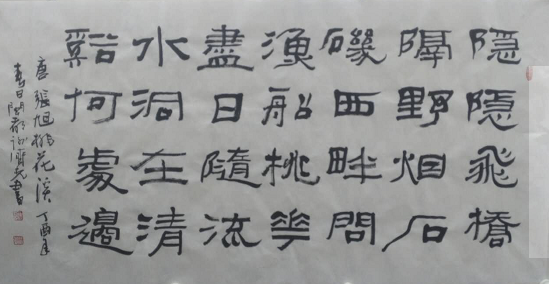 隱隱飛橋
隔野烟石
磯西畔問
漁船桃華
盡日隨流
水洞在清
谿何處邊
唐張旭桃花溪丁酉年
春日書